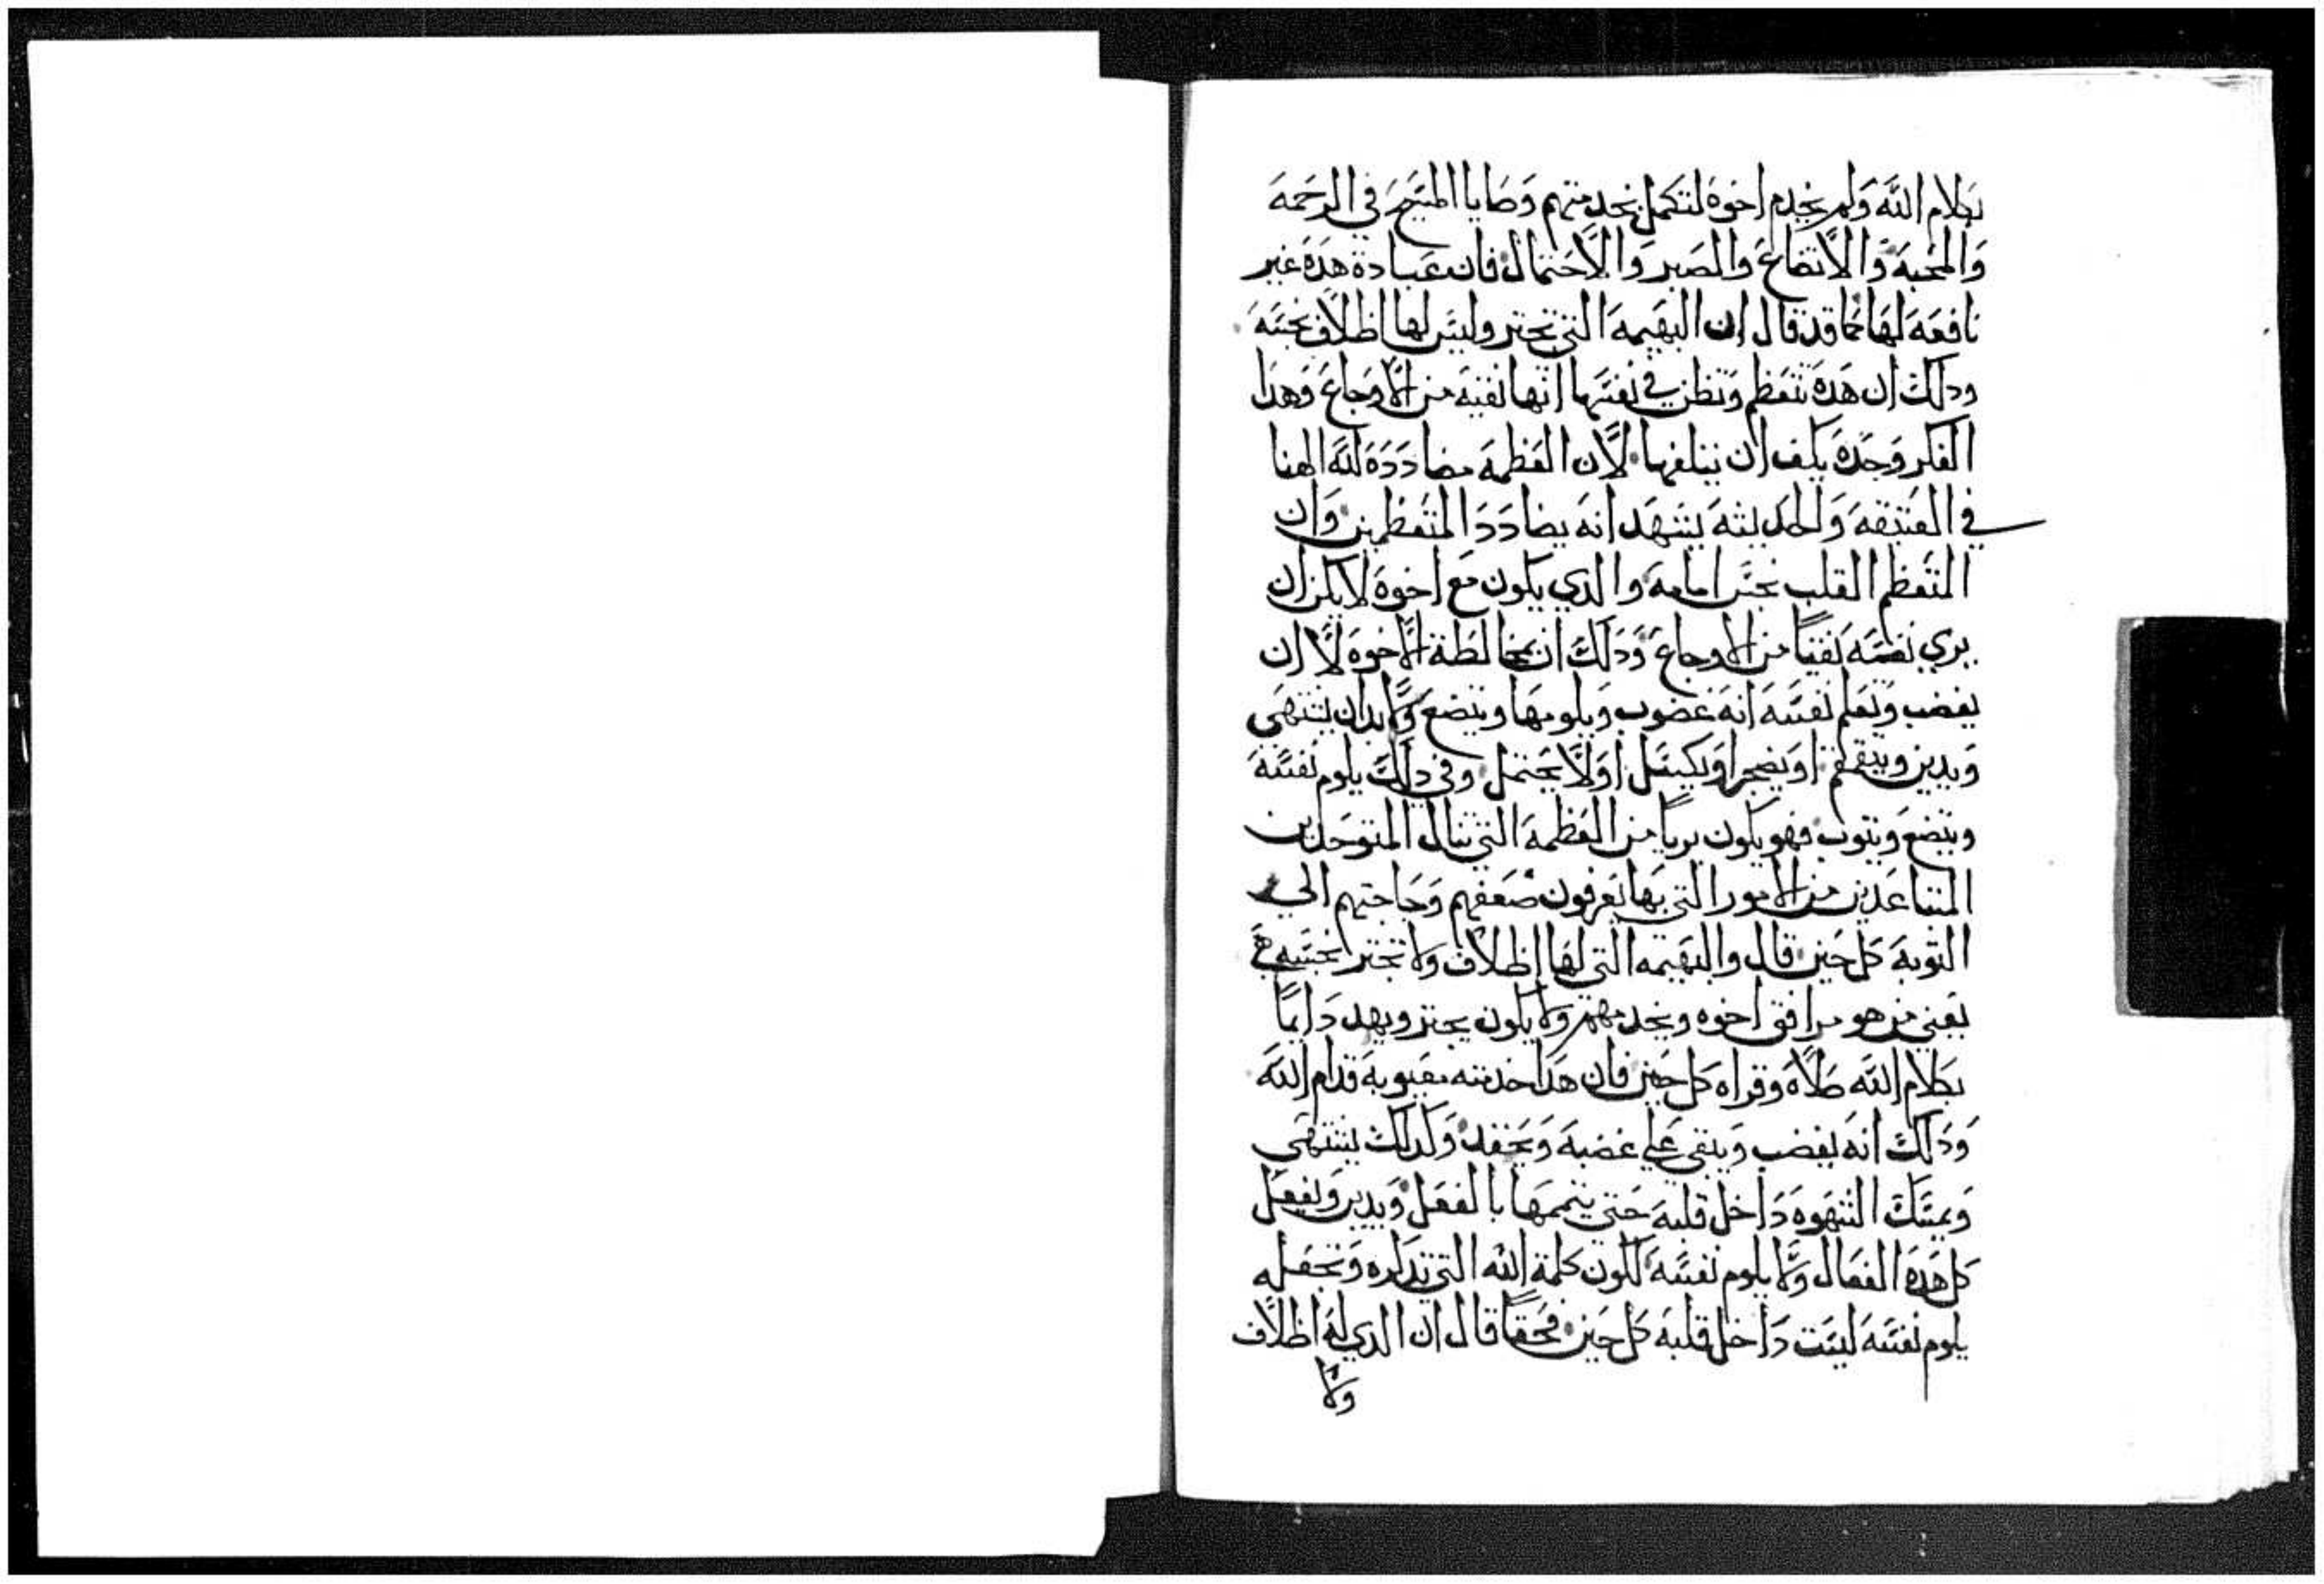 بكلام الله ولم يخدم اخوة لتكمل بخدمتهم وصايا المسيح في الرحمه
والمحبه والاتضاع والصبر والاحتمال فان عبادة هده غير
نافعه لها كما قد قال ان البهيمه التي تجتر وليس لها اظلاف نجسه
ودلك ان هده تتعظم وتظن في نفسها انها نقيه من الاوجاع وهدا
الفكر وحده يكفي ان يتلفها لان العظمه مضادده لله الهنا
في العتيقه والحديثه يشهد انه يضادد المتعظمين وان
المتعظم القلب نجس امامه والدي يكون مع اخوة لا يمكن ان
يري نفسه نقياً من الاوجاع ودلك ان مخالطة الاخوه لا ان
يغضب ويعلم نفسه انه غضوب ويلومها ويتضع ولابد ان يشتهي
ويدين ويتقمقم او يضجر او يكسل او لا يحتمل وفي دلك يلوم نفسه
ويتضع ويتوب فهو يكون برياً من العظمه التي تنال المتوحدين
المتباعدين من الامور التي بها يعرفون ضعفهم وحاجتهم الي
التوبه كل حين قال والبهيمه التي لها اظلاف ولا تجتر نجسه هي
يعني من هو مرافق اخوه ويخدمهم ولا يكون يجتر ويهد دايماً
بكلام الله صلاة وقراه كل حين فان هدا خدمته معيوبه قدام الله
ودلك انه يغضب ويبقي علي غضبه ويحقد وكدلك يشتهي
ويمسك الشهوه داخل قلبه حتي يتممها بالفعل ويدين ويفعل
كل هده الفعال ولا يلوم نفسه لكون كلمة الله التي تدكره وتجعله
يلوم نفسه ليست داخل قلبه كل حين فحقاً قال ان الدي له اظلاف
ولا